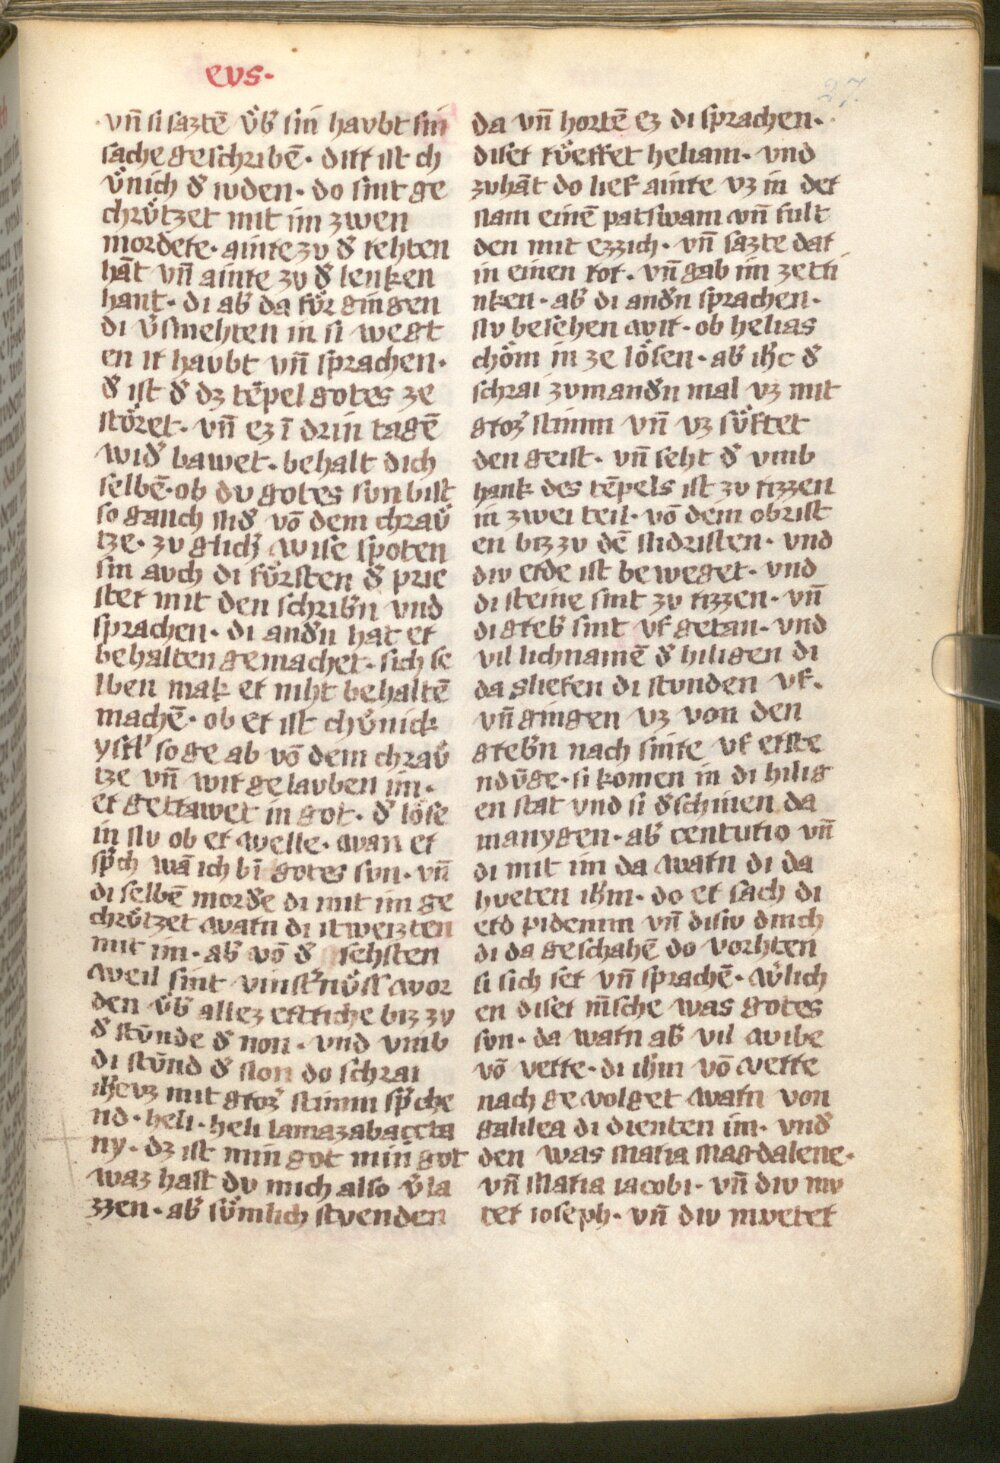 evs·
27.
vn̄ si saztē v̓b̓ sin havbt sin
sache geschribē· ditt ist ch
v̓nich d̓ ivden· do sint ge
chrv̓tzet mit im zwen
mordere· ainre zv d̓ rehten
hāt vn̄ ainre zv d̓ lenken
hant· di ab̓ da fv̓r gingen
di v̓smehten in si wegt
en ir havbt vn̄ sprachen·
d̓ ist d̓ dz tēpel gotes ze
störet· vn̄ ez ī drin tagē
wid̓ bawet· behalt dich
selbē· ob dv gotes svn bist
so ganch nid̓ vō dem chrav̓
tze· zv glich̓ wise spoten
sin avch di fv̓rsten d̓ prie
ster mit den schrib̓n vnd
sprachen· di and̓n hat er
behalten gemachet· sich se
lben mak er niht behaltē
machē· ob er ist chv̓nick
ysrl̓ so ge ab vō dem chrav̓
tze vn̄ wir gelavben im·
er getrawet in got· d̓ löse
in nv ob er welle· wan er
sp̓ch wā ich bī gotes svn· vn̄
di selbē mord̓e di mit im ge
chrv̓tzet warn di itweizten
mit im· ab̓ vō d̓ sehsten
weil sint vinst̓nv̓ss wor
den v̓b̓ allez ertriche biz zv
d̓ stv̄nde d̓ non· vnd vmb
di stv̄nd d̓ non do schrai
ih̄evz mit groz̓ stimm sp̓che
nd· heli· heli lamazabacta
ny· dz ist min got min got
waz hast dv mich also v̓la
zzen· ab̓ sv̓mlich stvenden
da vn̄ hortē ez di sprachen·
diser rv̓effet heliam· vnd
zvhāt do lief ainre vz in der
nam einē patswam vn̄ fult
den mit ezzich· vn̄ sazte dar
in einen ror· vn̄ gab im zetri
nken· ab̓ di and̓n sprachen·
nv besehen wir· ob helias
chöm in ze lösen· ab̓ ih̄c d̓
schrai zvmand̓n mal vz mit
groz̓ stimm vn̄ vz sv̓ftet
den geist· vn̄ seht d̓ vmb
hank des tēpels ist zv rizzen
in zwei teil· vō dem obrist
en biz zv dē nidristen· vnd
div erde ist beweget· vnd
di steine sint zv rizzen· vn̄
di greb̓ sint vf getan· vnd
vil lichnamē d̓ hiligen di
da sliefen di stvnden vf·
vn̄ gingen vz von den
greb̓n nach sinre vf erste
ndv̄ge· si komen in di hilig
en stat vnd si d̓schinen da
manygen· ab̓ centurio vn̄
di mit im da warn di da
hveten ih̄m· do er sach di
erd pidemm vn̄ disiv dinch
di da geschahē do vorhten
si sich ser vn̄ sprachē· wl̓ich
en diser m̄sche was gotes
svn· da warn ab̓ vil wibe
vō verre· di ih̄m vō verre
nach gevolget warn von
galilea di dienten im· vnd̓
den was maria magdalene·
vn̄ maria iacobi· vn̄ div mv
ter ioseph· vn̄ div mveter